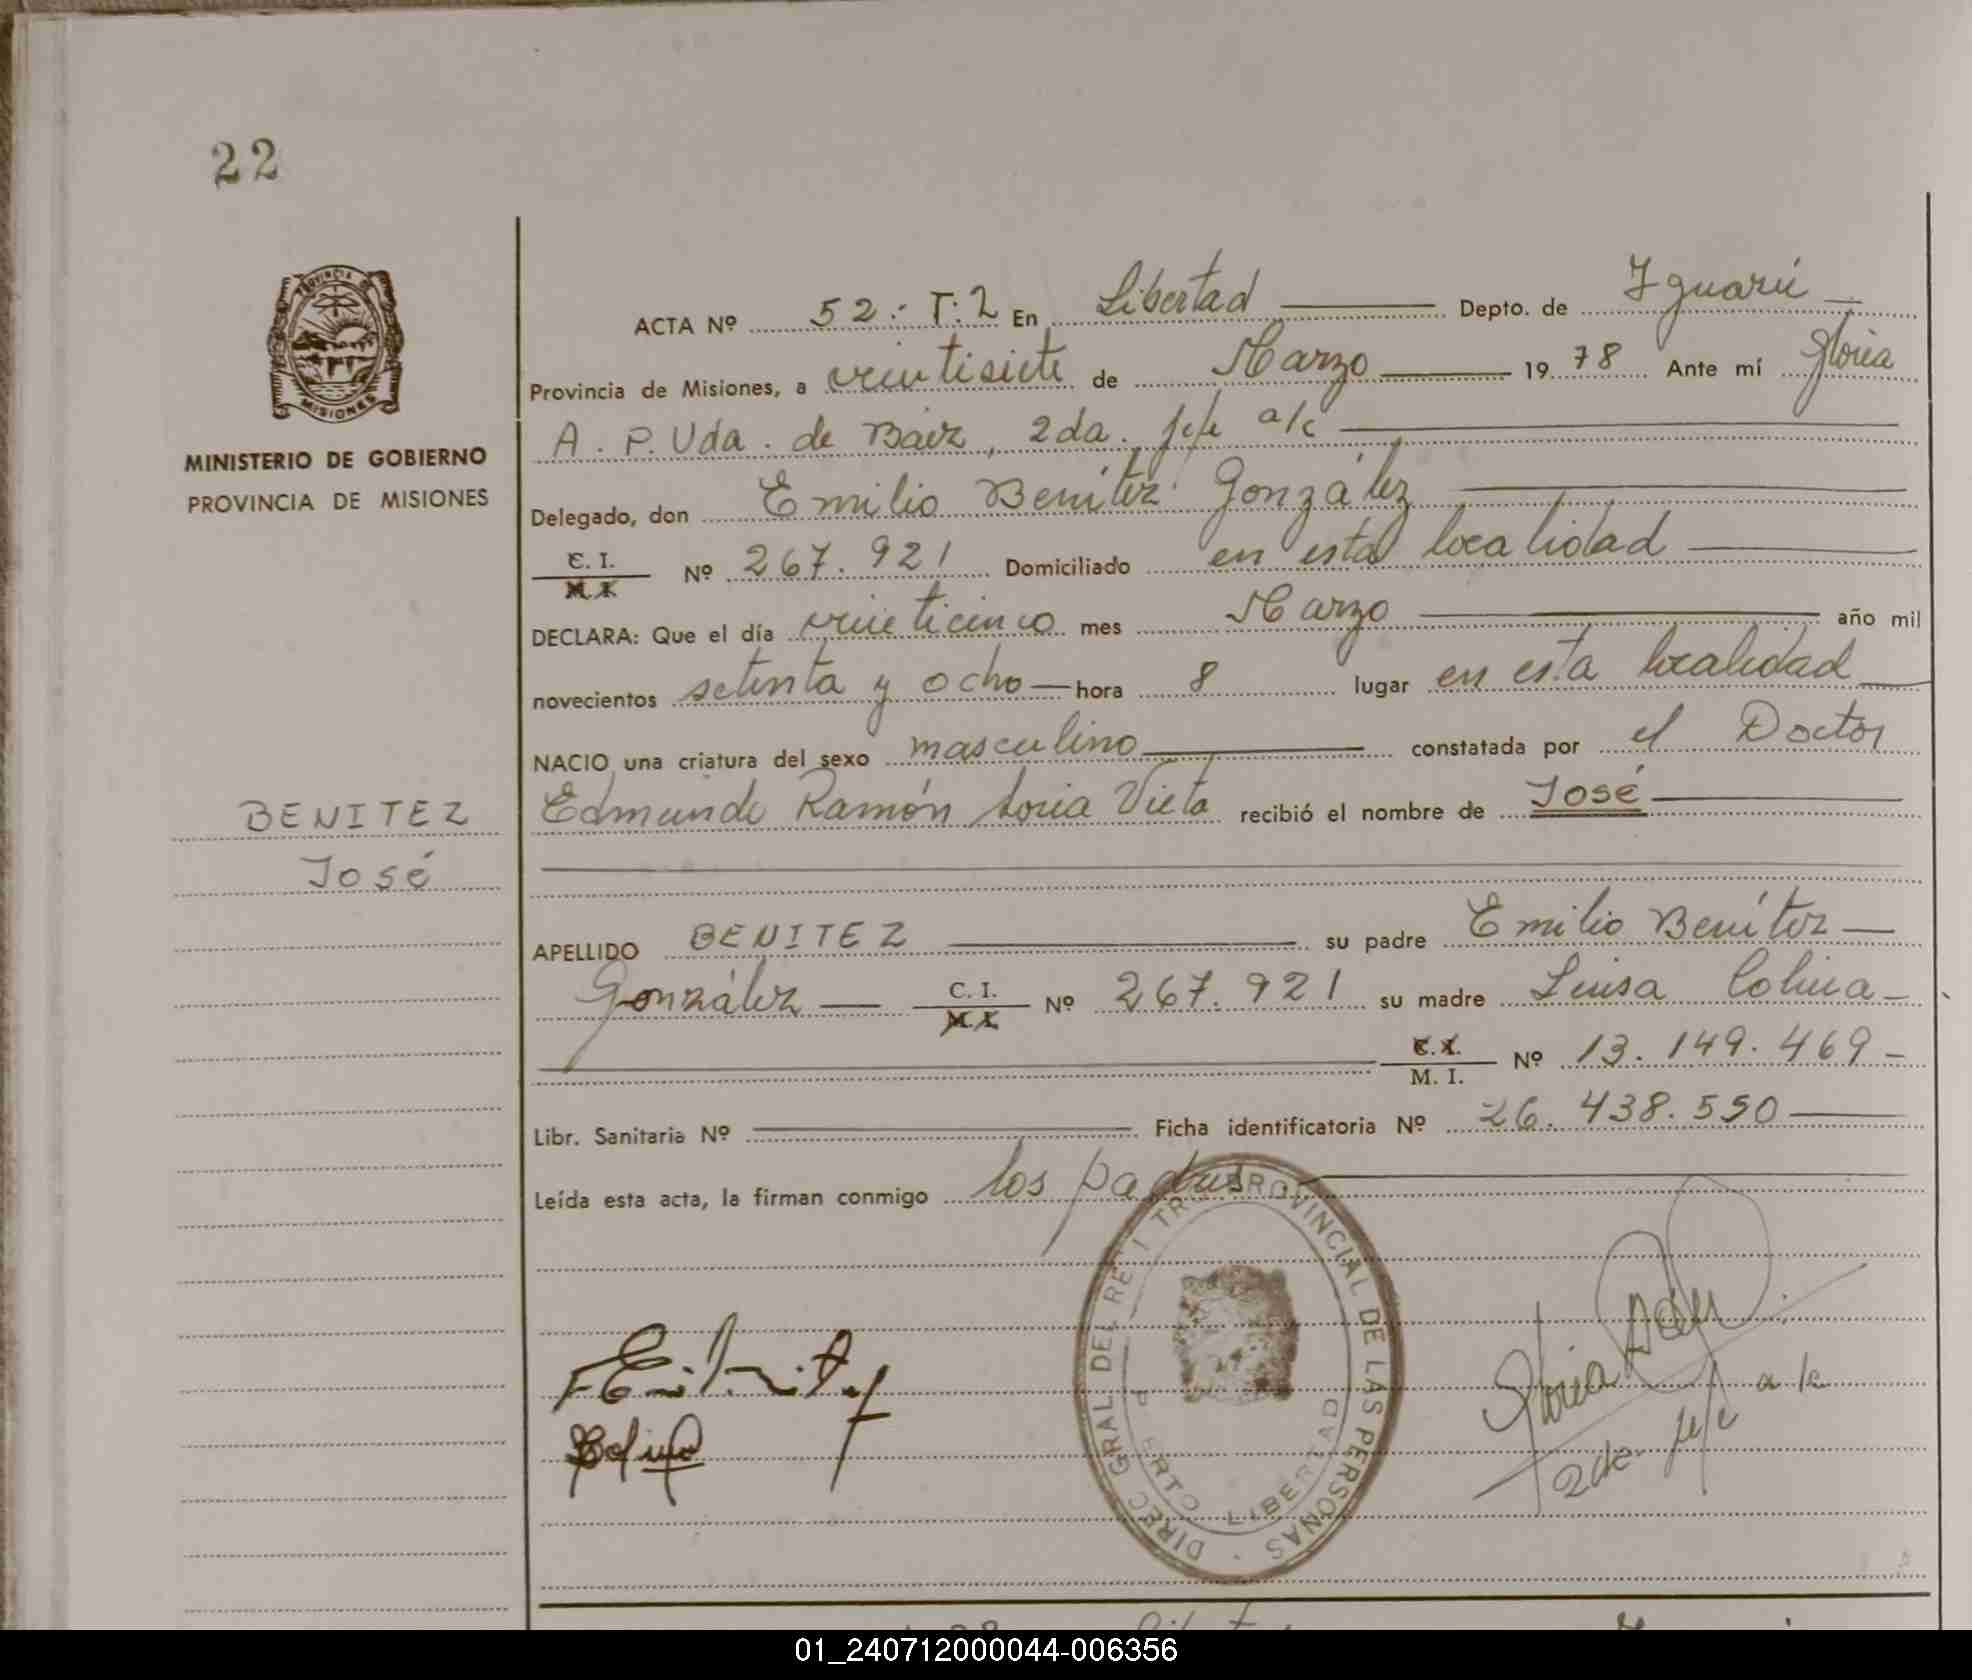 22
PROVINCIA DE
MISIONES
MINISTERIO DE GOBIERNO
PROVINCIA DE MISIONES
BENITEZ
José
ACTA Nº 52.- T:2 En Libertad Depto. de Iguazú
Provincia de Misiones, a veintisiete de Marzo 1978 Ante mí Gloria
A. P. Vda. de Báez, 2da. jefe a/c
Delegado, don Emilio Benítez González
C. I. M. I. Nº 267.921 Domiciliado en esta localidad
DECLARA: Que el día veinticinco mes Marzo año mil
novecientos setenta y ocho hora 8 lugar en esta localidad
NACIO una criatura del sexo masculino constatada por el Doctor
Edmundo Ramón Soria Vieta recibió el nombre de José
APELLIDO BENITEZ su padre Emilio Benítez
González C. I. M. I. Nº 267.921 su madre Luisa Colina
C. I. M. I. Nº 13.149.469
Libr. Sanitaria Nº Ficha identificatoria Nº 26.438.550
Leída esta acta, la firman conmigo los padres
DIREC GRAL DEL REGISTRO PROVINCIAL DE LAS PERSONAS
PUERTO LIBERTAD
Colina
Gloria
2da. jefe a/c
01_240712000044-006356